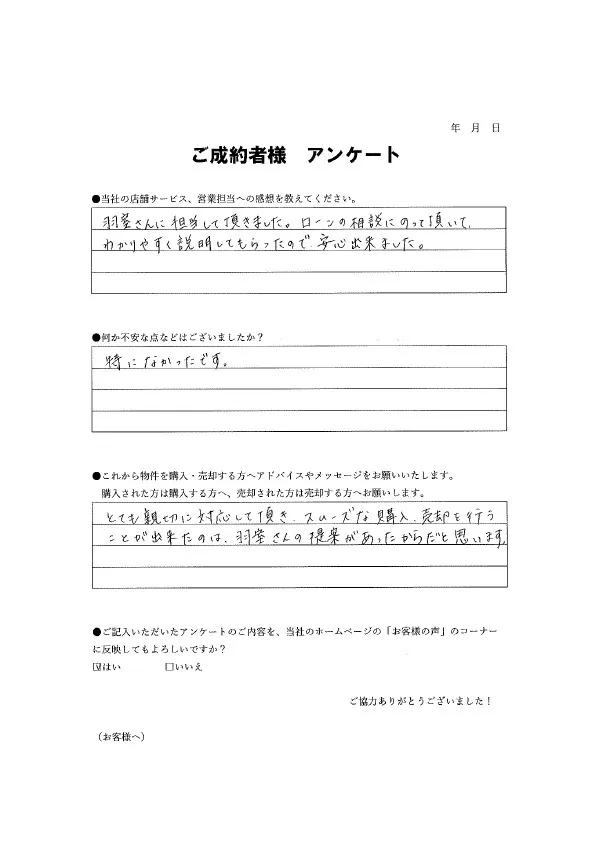 年 月 日
ご成約者様 アンケート
●当社の店舗サービス、営業担当への感想を教えてください。
羽室さんに担当して頂きました。ローンの相談にのって頂いて、
わかりやすく説明してもらったので、安心出来ました。
●何か不安な点などはございましたか？
特になかったです。
●これから物件を購入・売却する方へアドバイスやメッセージをお願いいたします。
購入された方は購入する方へ、売却された方は売却する方へお願します。
とても親切に対応して頂き、スムーズな購入、売却を行う
ことが出来たのは、羽室さんの提案があったからだと思います。
●ご記入いただいたアンケートのご内容を、当社のホームページの「お客様の声」のコーナー
に反映してもよろしいですか？
☑はい □いいえ
ご協力ありがとうございました！
（お客様へ）